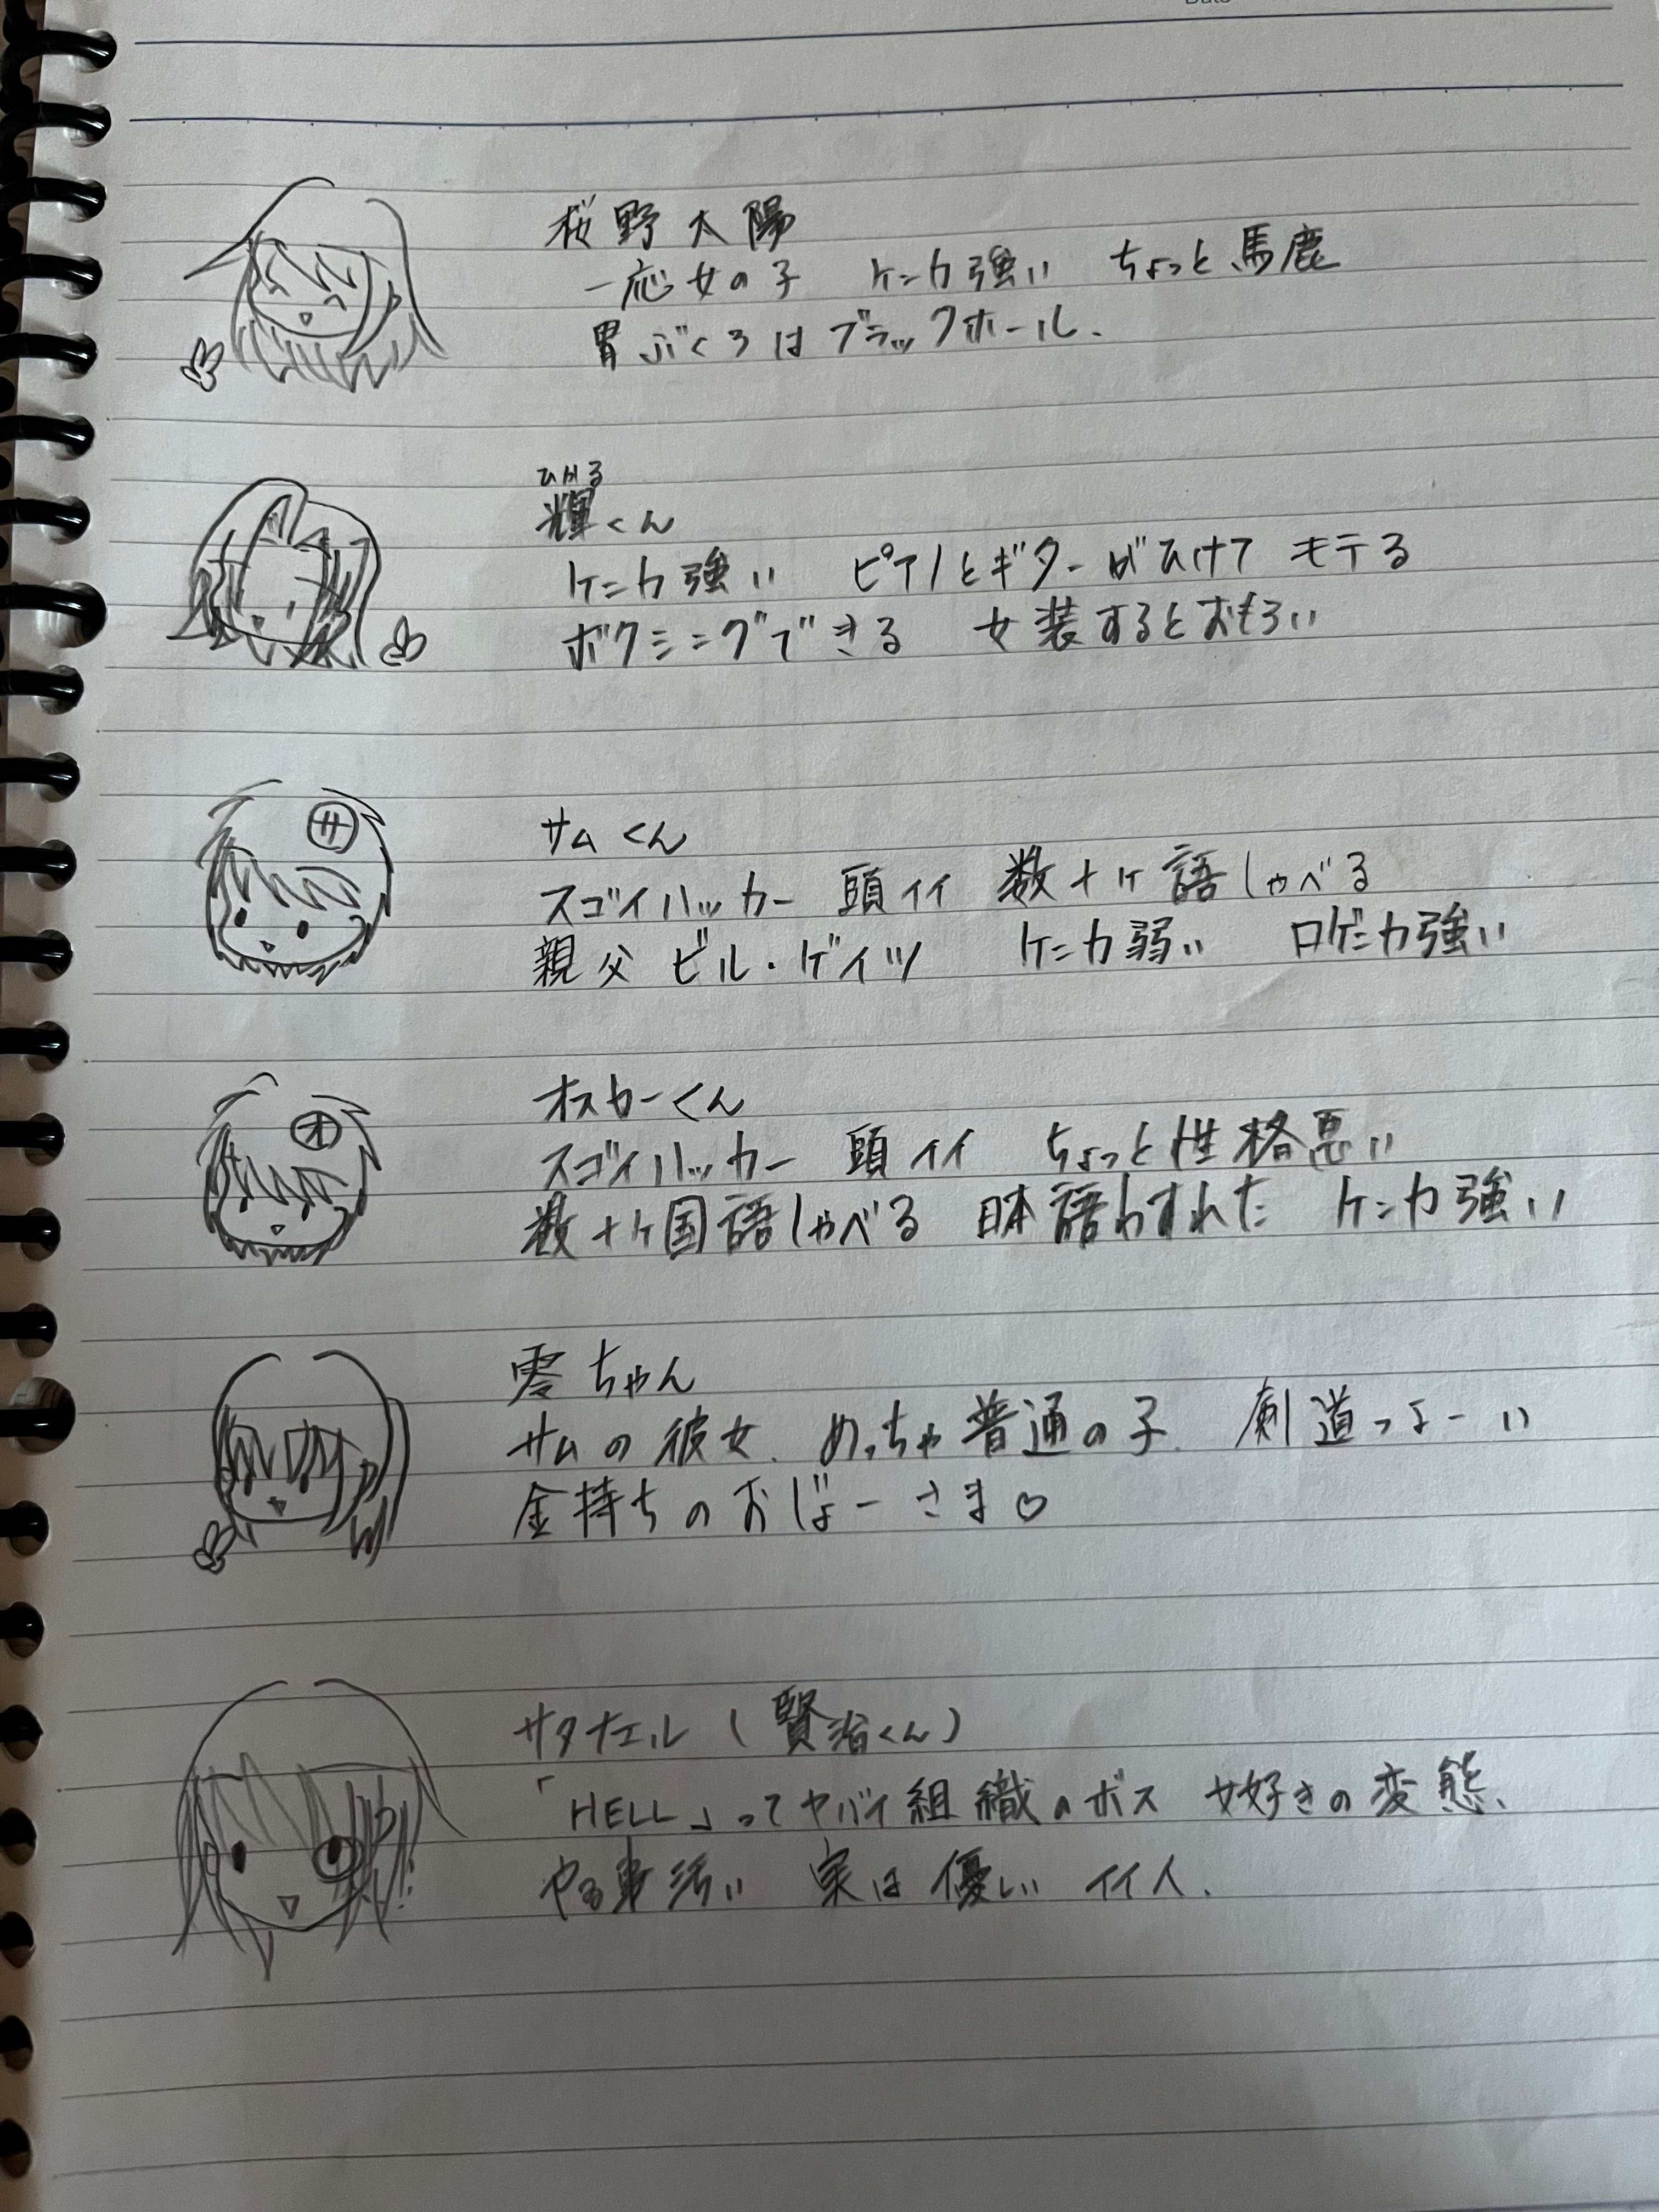 桜野太陽
一応女の子 ケンカ強い ちょっと馬鹿
胃ぶくろはブラックホール.
ひかる
輝くん
ケンカ強い ピアノとギターがひけて モテる
ボクシングできる 女装するとおもろい
サ
サムくん
スゴイハッカー 頭イイ 数十ヶ語しゃべる
親父 ビル・ゲイツ ケンカ弱い 口ゲンカ強い
オ
オスカーくん
スゴイハッカー 頭イイ ちょっと性格悪い
数十ヶ国語しゃべる 日本語わすれた ケンカ強い
零ちゃん
サムの彼女. めっちゃ普通の子. 剣道つよーい
金持ちのおじょーさま♡
サタナエル (賢治くん)
「HELL」ってヤバイ組織のボス 女好きの変態.
やる事 実は優しい イイ人.